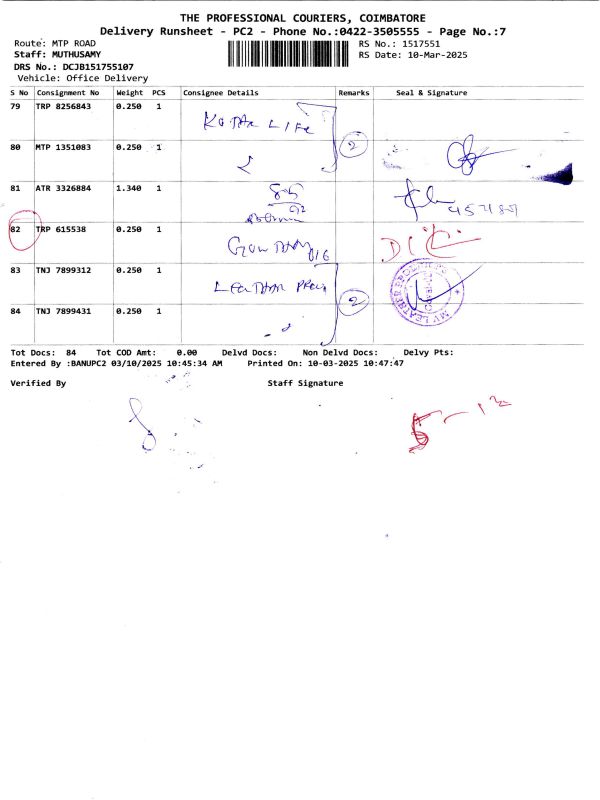 THE PROFESSIONAL COURIERS, COIMBATORE
Delivery Runsheet - PC2 - Phone No.:0422-3505555 - Page No.:7
Route: MTP ROAD
RS No.: 1517551
Staff: MUTHUSAMY
RS Date: 10-Mar-2025
DRS No.: DCJB151755107
Vehicle: Office Delivery
S No Consignment No Weight PCS Consignee Details Remarks Seal & Signature
79 TRP 8256843 0.250 1
KOTAK LIFE
80 MTP 1351083 0.250 1
2
81 ATR 3326884 1.340 1
82 TRP 615538 0.250 1
GOWTHAM
83 TNJ 7899312 0.250 1
LEATHER
2
84 TNJ 7899431 0.250 1
Tot Docs: 84 Tot COD Amt: 0.00 Delvd Docs: Non Delvd Docs: Delvy Pts:
Entered By :BANUPC2 03/10/2025 10:45:34 AM Printed On: 10-03-2025 10:47:47
Verified By Staff Signature